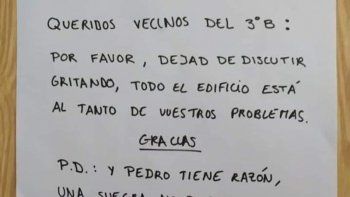 QUERIDOS VECINOS DEL 3ºB:
POR FAVOR, DEJAD DE DISCUTIR
GRITANDO, TODO EL EDIFICIO ESTÁ
AL TANTO DE VUESTROS PROBLEMAS.
GRACIAS
P.D.: Y PEDRO TIENE RAZÓN,
UNA SUEGRA NO